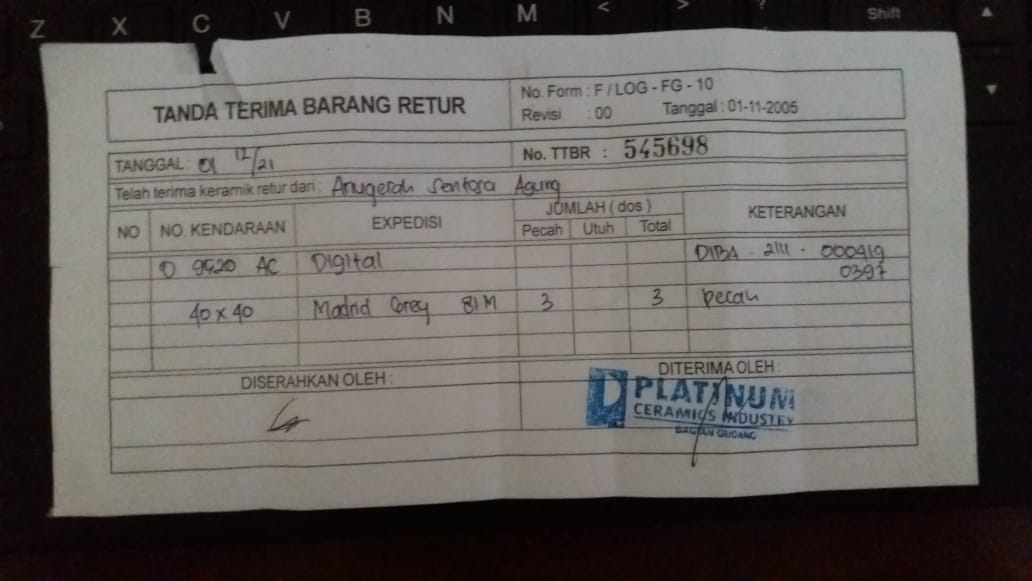 Z X C V B N M < > ? Shift
TANDA TERIMA BARANG RETUR
No. Form : F / LOG - FG - 10
Revisi : 00 Tanggal : 01-11-2005
TANGGAL : 01 12/21
No. TTBR : 545698
Telah terima keramik retur dari : Anugerah Sentosa Agung
NO NO. KENDARAAN EXPEDISI JUMLAH ( dos ) KETERANGAN
Pecah Utuh Total
D 9920 AC Digital DIBA - 2111 - 000419
0397
40 x 40 Madrid Grey 81 M 3 3 pecah
DISERAHKAN OLEH : DITERIMA OLEH :
PLATINUM
CERAMICS INDUSTRY
BAGIAN GUDANG